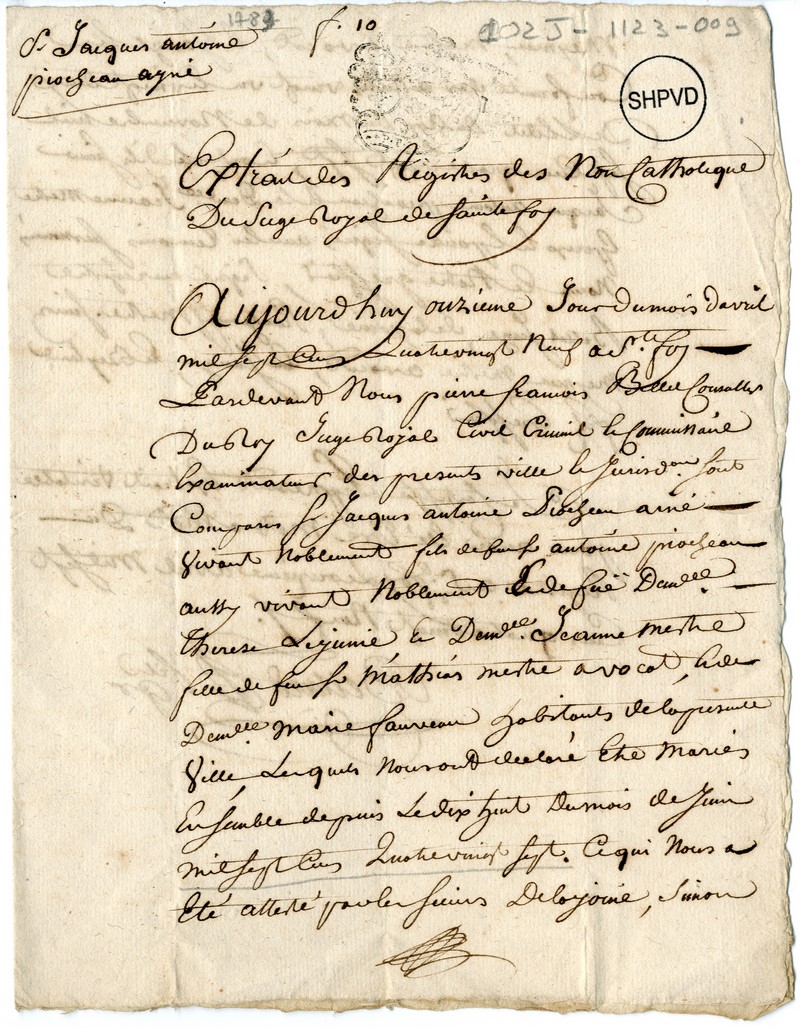 1789
f. 10
102J-1123-009
Sr. Jacques antoine
piocheau ayné
SHPVD
Extrait des Registres des Non Catholique
Du Siege Royal de Sainte foy
Aujourdhuy onzieme Jour du mois davril
mil sept Cens Quatre vingt Neuf a Ste. foy
Pardevant Nous pierre francois Bellet Conseller
Du Roy Juge Royal Civil Criminel le Commissaire
Examinateur des presents ville le Jurisdon. sont
Comparus Sr. Jacques antoine Piocheau ainé
Vivant Noblement fils de feu Sr antoine piocheau
aussy vivant Noblement & de fuë Demlle.
Therese Lejunie & Demlle. Jeanne mestre
fille de feu Sr Mathias mestre avocat, & de
Demlle marie fauveau habitants de la presente
Ville, Lesquels Nous ont declaré Etre Mariés
Ensemble depuis Le dix huit Du mois de Juin
mil sept Cens Quatre vingt sept. Ce qui Nous a
Eté attesté par les sieurs Delajoinie, Simon